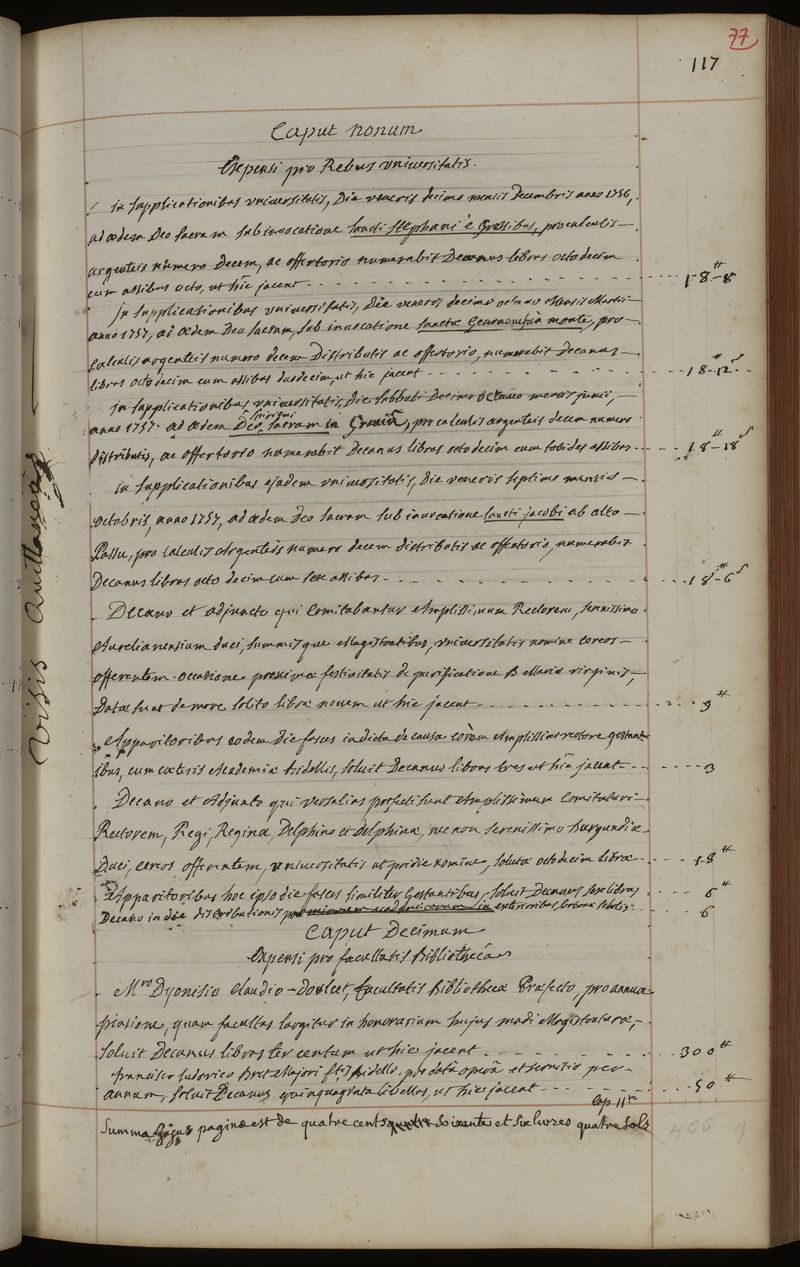 77
117
Caput nonum
Expensi pro Rebus universitatis.
in supplicationibus universitatis, Die veneris decima mensis Decembris anno 1756,
ad ædem Deo sacram sub invocatione sancti Stephani è Gressibus, pro calculis
argenteis numero Decem, ac offertorio numerabit Decanus libras octodecim
cum assibus octo, ut hic jacent 18 - 8
in supplicationibus universitatis, Die veneris decimo octavo Mensis Martii
anno 1757, ad ædem Deo sacram, sub invocatione sanctæ Genovefæ à monte, pro
calculis argenteis numero decem Distributis ac offertorio, numerabit Decanus
libras octodecim cum assibus duodecim, ut hic jacent 18 - 12
in supplicationibus universitatis, Die sabbati Decimo octavo mensis junii,
anno 1757 ad ædem Deo sacram in pro calculis argenteis decem numero
distributis, ac offertorio numerabit Decanus libras octodecim cum totidem assibus 18 - 18
in supplicationibus ejusdem universitatis, die veneris septima mensis
octobris, anno 1757, ad ædem Deo sacram sub invocatione sancti jacobi ab alto
Passu, pro calculis Argenteis numero decem distributis ac offertorio, numerabit
Decanus libras octodecim cum sex assibus 18 - 6
Decano et adjuncto qui Comitabantur Amplissimum Rectorem, serenissimo
Aurelianensium duci, summisque Magistratibus, universitatis nomine cereos
offerentem occasione proximæ festivitatis de purificatione B Mariæ virginis,
Datæ sunt de more solito libræ novem ut hic jacent 9
Apparitoribus eodem die fasces indicta de causa coràm Amplissimo rectore gestant
ibus, cum cæteris Academiæ bidellis, solvit Decanus libras tres ut hic jacent 3
Decano et Adjuncto qui versalias profecti sunt Amplissimum Comitaturi
Rectorem, Regi, Reginæ, Delphino et delphinæ, nec non serenissimo Burgundiæ
Duci, cereos offerentem, universitatis ut pridie nomine, solutæ octodecim libræ 18
Apparitoribus hoc ipso die fasces similiter Gestantibus, solvit Decanus sex libras 6
Decano in die distributionis præmiorum in exterioribus sorbonæ scholis 6
Caput Decimum
Expensi pro facultatis Bibliothecâ
Mro Dyonisio Claudio Doulcet, facultatis Bibliothecæ Præfecto, pro annua
pensione, quam facultas largitur in honorarium hujus modi Magistraturæ,
solvit Decanus libras ter centum ut hic jacent 300
francisco ludovico Bret Majori ftis Bidello, pro datâ operâ et servitio per
annum, solvit Decanus quinquaginta libellas, ut hic jacent 50
Cap 11um
Summa hujus paginæ est de quatre cents soixante et six livres quatre sols
466
Visis quittanciis